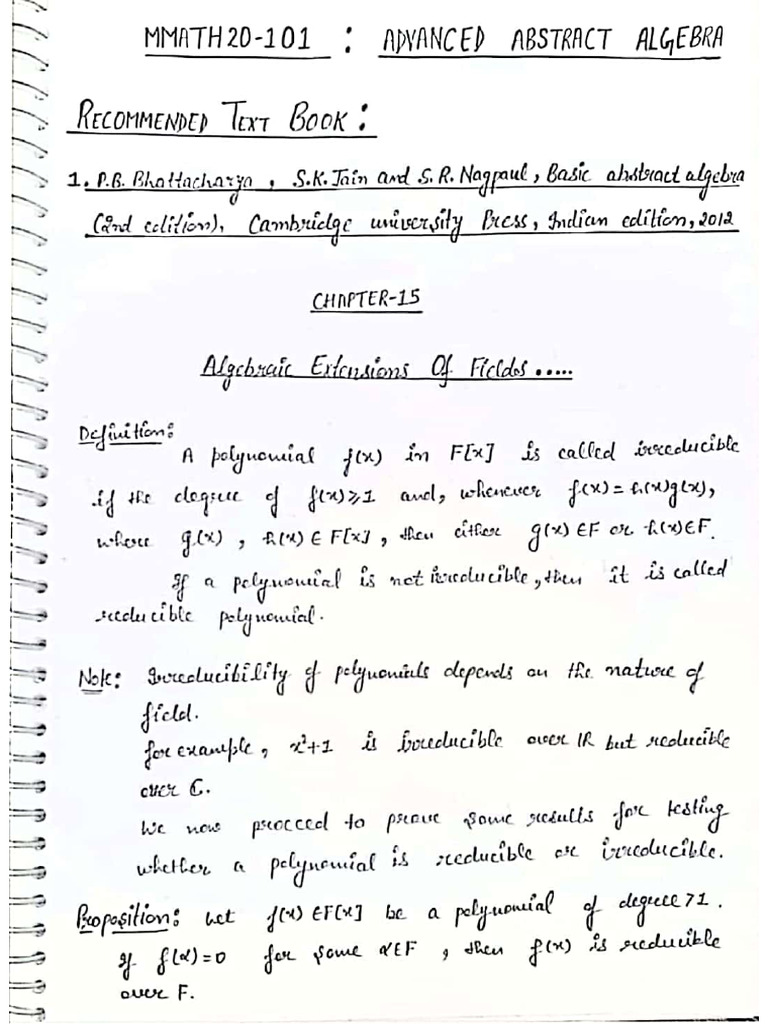 MMATH20-101 : ADVANCED ABSTRACT ALGEBRA
RECOMMENDED TEXT BOOK :
1. P.B. Bhattacharya , S.K. Jain and S.R. Nagpaul, Basic abstract algebra
(2nd edition), Cambridge university Press, Indian edition, 2012
CHAPTER-15
Algebraic Extensions Of Fields .....
Definition:
A polynomial f(x) in F[x] is called irreducible
if the degree of f(x)⩾1 and, whenever f(x) = h(x)g(x),
where g(x) , h(x) ∈ F[x] , then either g(x) ∈F or h(x)∈F.
If a polynomial is not irreducible, then it is called
reducible polynomial.
Note: Irreducibility of polynomials depends on the nature of
field.
for example, x²+1 is irreducible over IR but reducible
over C.
We now proceed to prove some results for testing
whether a polynomial is reducible or irreducible.
Proposition: Let f(x) ∈F[x] be a polynomial of degree >1.
If f(α)=0 for some α∈F , then f(x) is reducible
over F.